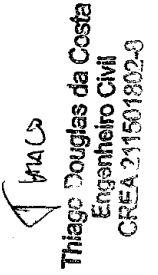 Thiago Douglas da Costa
Engenheiro Civil
CREA 211501802-8